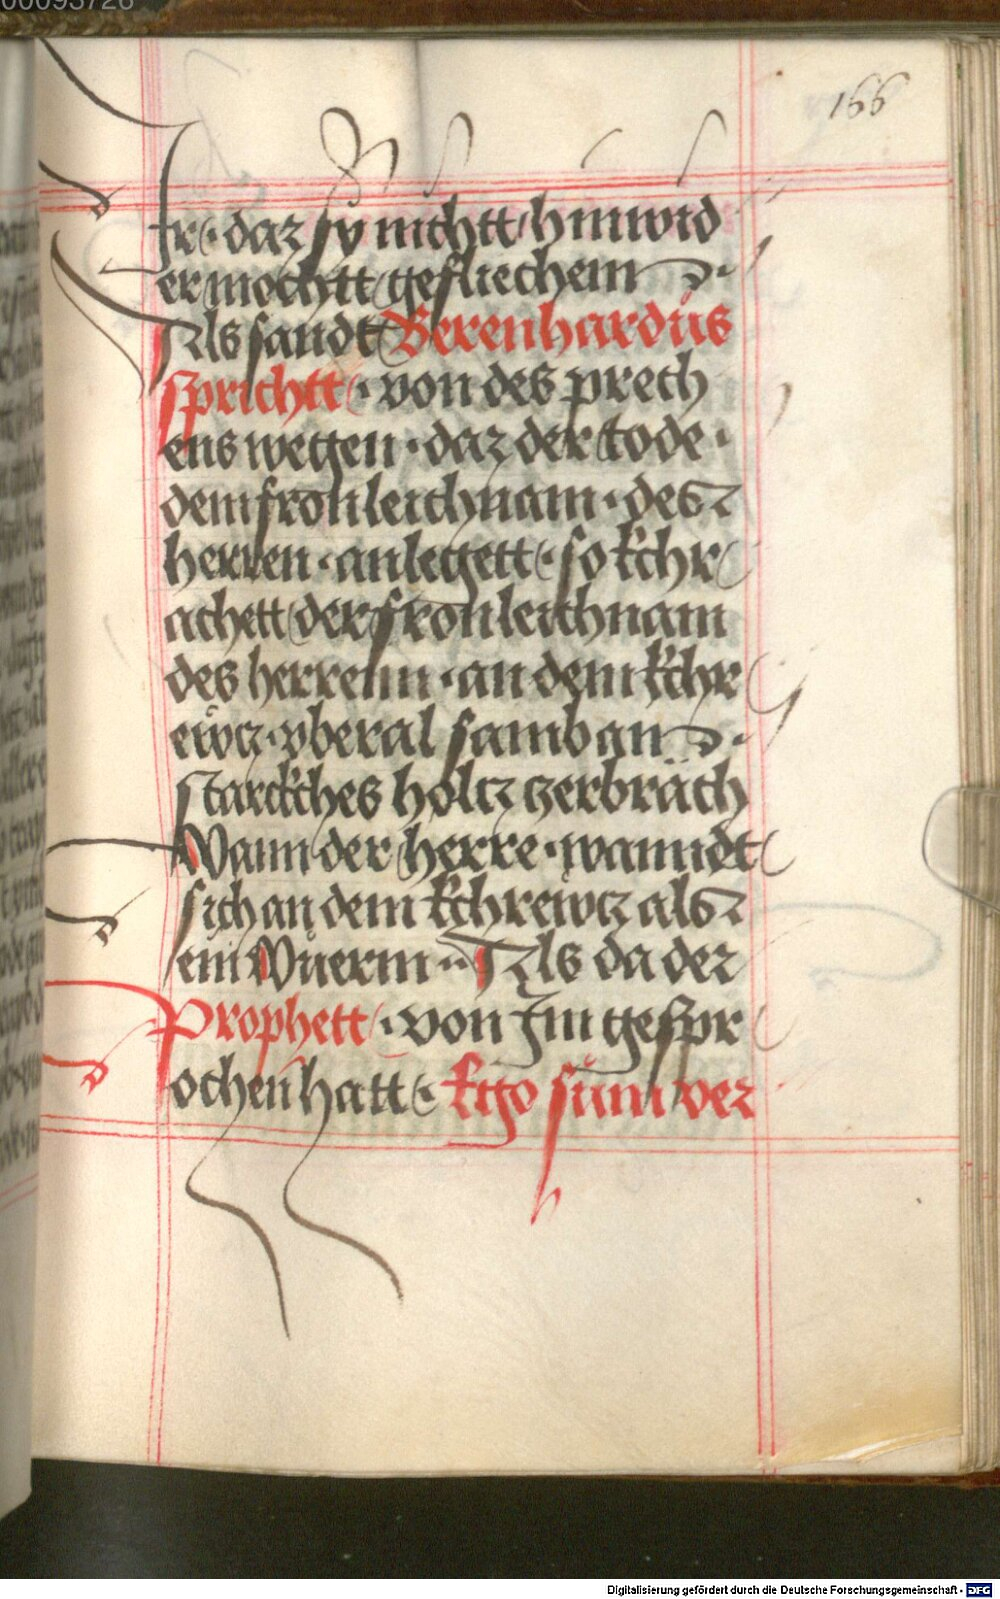 00093726
166
Ir · daz sy nichtt hinwid
er mochtt gefliechenn ·
Als sandt Berenhardus
sprichtt · von des prech
ens wegen · daz der tode ·
dem fronleichnam · des
herren · anlegett · so kchr
achett der fronleichnam
des herrenn · an dem kchr
ewcz · vberal samb an ·
starckches holcz zerbräch
Wann der herre · wanndt
sich an dem kchrewcz als
ein Wuerm · Als da der
Prophett · von Im gespr
ochen hatt · Ego sum ver
Digitalisierung gefördert durch die Deutsche Forschungsgemeinschaft - DFG